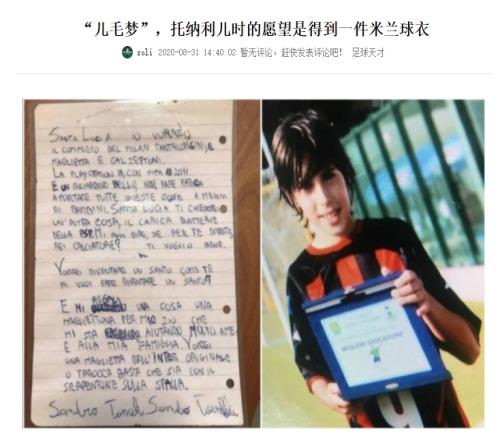 “儿毛梦”，托纳利儿时的愿望是得到一件米兰球衣
zoli 2020-08-31 14:40:02 暂无评论，赶快发表评论吧！ 足球天才
SANTA LUCIA IO VORREI
IL COMPLETO DEL MILAN PANTALONCINI, E
MAGLIETTA E CALZETTONI.
LA PLAYSTATION 3, CON FIFA 2011.
E UN BELLO, NON FARE FATICA
A PORTARE TUTTE QUESTE COSE A MILIONI
DI BAMBINI. SANTA LUCIA TI CHIEDO
UN'ALTRA COSA, IL CARICA BATTERIE
DELLA PSP. MI PUOI DIRE, SE PER TE DIVENTO
CALCIATORE? TI VOGLIO BENE.
VORREI DIVENTARE UN SANTO COME TE
MI VUOI FARE DIVENTARE UN SANTO?
E MI REGALI UNA COSA UNA
MAGLIETTINA PER MIO ZIO CHE
MI STA AIUTANDO MOLTO A ME
E ALLA MIA FAMIGLIA. VORREI
UNA MAGLIETTA DELL'INTER ORIGINALE
O TAROCCA BASTA CHE SIA CON IL
SERPENTONE SULLA SPALLA.
Sandro Tonali Sandro Tonali
MIGLIOR GIOCATORE